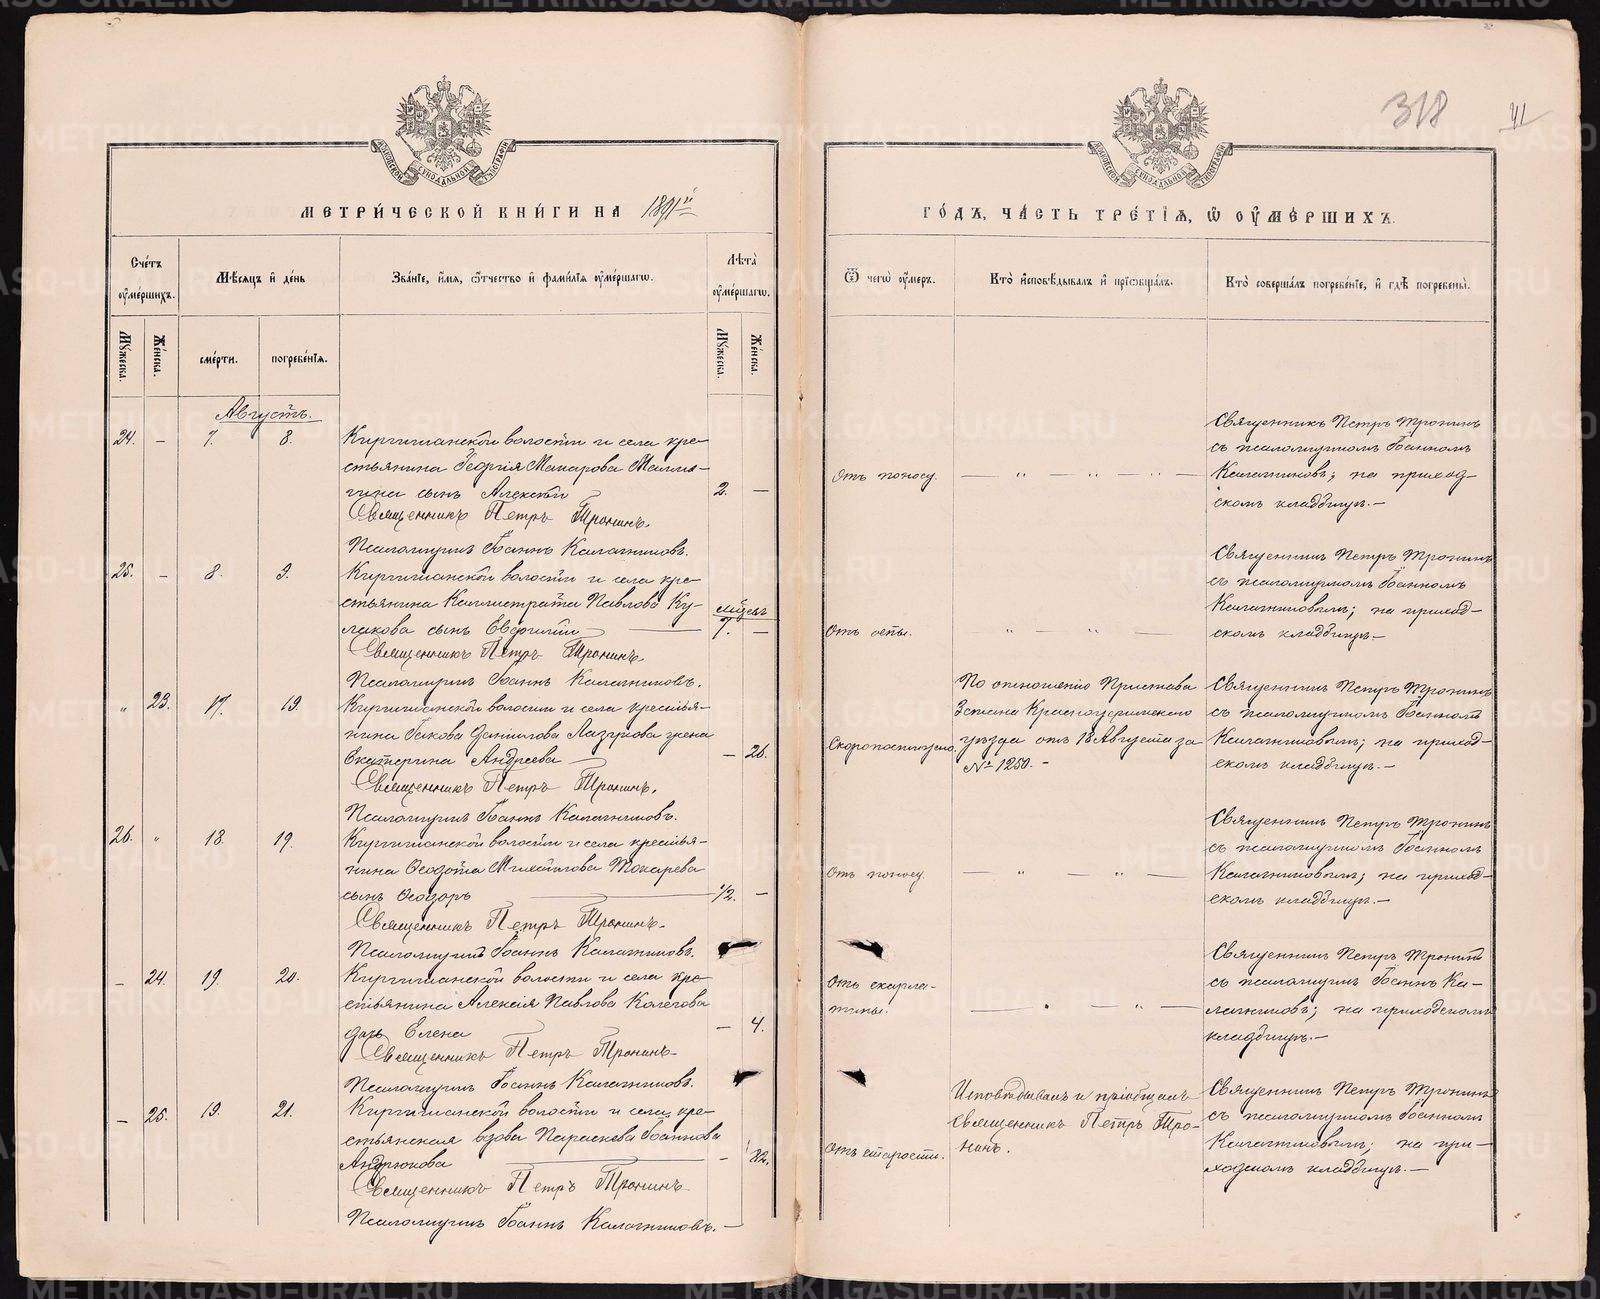 318
МЕТРИ́ЧЕСКОЙ КНИ́ГИ НА 1891й
ГО́ДЪ, ЧА́СТЬ ТРЕ́ТІѦ, Ѡ҆ ОУ҆МЕ́РШИХЪ.
МОСКОВСКОЙ СѴНОДАЛЬНОЙ ТѴПОГРАФІИ
МОСКОВСКОЙ СѴНОДАЛЬНОЙ ТѴПОГРАФІИ
Сче́тъ оу҆ме́ршихъ.
Мѣ́сѧцъ и҆ де́нь
Зва́нїе, и҆́мѧ, ѻ҆́тчество и҆ фами́лїѧ оу҆ме́ршагѡ.
Лѣ̀та оу҆ме́ршагѡ.
Ѿ чегѡ̀ оу҆́меръ.
Кто̀ и҆сповѣ́дывалъ и҆ прїѡбща́лъ.
Кто̀ соверша́лъ погребе́нїе, и҆ гдѣ̀ погребены̀.
Мꙋ́жеска.
Же́нска.
сме́рти.
погребе́нїѧ.
Мꙋ́жеска.
Же́нска.
Августъ.
24. – 7. 8.
Киргишанской волости и села кре-
стьянина Георгія Макарова
сынъ Алексѣй
2. –
Священникъ Петръ Тронинъ.
Псаломщикъ Іоаннъ Калашниковъ.
Отъ поносу.
Священникъ Петръ Тронинъ
съ псаломщикомъ Іоанномъ
Калашниковъ; на приход-
скомъ кладбищѣ.–
25. – 8. 9.
Киргишанской волости и села кре-
стьянина Каллистрата Павлова Ку-
лакова сынъ Евсигній
мѣсяц.
7. –
Священникъ Петръ Тронинъ
Псаломщикъ Іоаннъ Калашниковъ.
Отъ оспы.
Священникъ Петръ Тронинъ
съ псаломщикомъ Іоанномъ
Калашниковымъ; на приход-
скомъ кладбищѣ–
" 23. 17. 19.
Киргишанской волости и села крестья-
нина Іакова Данилова Лазукова жена
Екатерина Андреева
– 26.
Священникъ Петръ Тронинъ.
Псаломщикъ Іоаннъ Калашниковъ.
Скоропостижно.
По отношенію Пристава
3 стана Красноуфимскаго
уѣзда отъ 18 Августа за
№ 1250.–
Священникъ Петръ Тронинъ
съ псаломщикомъ Іоанномъ
Калашниковымъ; на приход-
скомъ кладбищѣ.–
26. " 18. 19.
Киргишанской волости и села крестья-
нина Ѳеодота Михаилова Токарева
сынъ Ѳеодоръ
1/2. –
Священникъ Петръ Тронинъ.
Псаломщикъ Іоаннъ Калашниковъ.
Отъ поносу.
Священникъ Петръ Тронинъ
съ псаломщикомъ Іоанномъ
Калашниковымъ; на приход-
скомъ кладбищѣ.–
– 24. 19. 20.
Киргишанской волости и села кре-
стьянина Алексія Павлова Колегова
дочь Елена
– 4.
Священникъ Петръ Тронинъ
Псаломщикъ Іоаннъ Калашниковъ.
Отъ скарла-
тины.
Священникъ Петръ Тронинъ
съ псаломщикъ Іоаннъ Ка-
лашниковъ; на приходскомъ
кладбищѣ.–
– 25. 19. 21.
Киргишанской волости и села кре-
стьянская вдова Параскева Іоаннова
Андрюкова
– 82.
Священникъ Петръ Тронинъ
Псаломщикъ Іоаннъ Калашниковъ.–
Отъ старости.
Исповѣдывалъ и пріобщалъ
священникъ Петръ Тро-
нинъ.
Священникъ Петръ Тронинъ
съ псаломщикомъ Іоанномъ
Калашниковымъ; на при-
ходскомъ кладбищѣ.–
METRIKI.GASO-URAL.RU